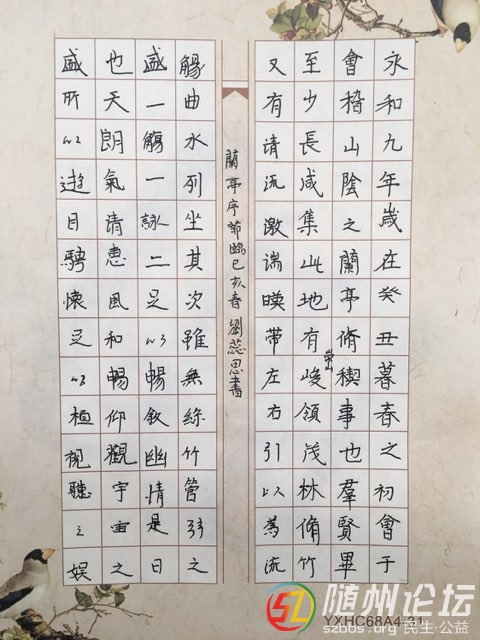 永和九年歲在癸丑暮春之初會于
會稽山陰之蘭亭脩禊事也羣賢畢
至少長咸集此地有崇山峻領茂林脩竹
又有清流激湍暎帶左右引以為流
蘭亭序節臨己亥春劉蕊思書
觴曲水列坐其次雖無絲竹管弦之
盛一觴一詠二足以暢敘幽情是日
也天朗氣清惠風和暢仰觀宇宙之
盛所以遊目騁懷足以極視聽之娛
随州论坛
szbbs.org 民生·公益